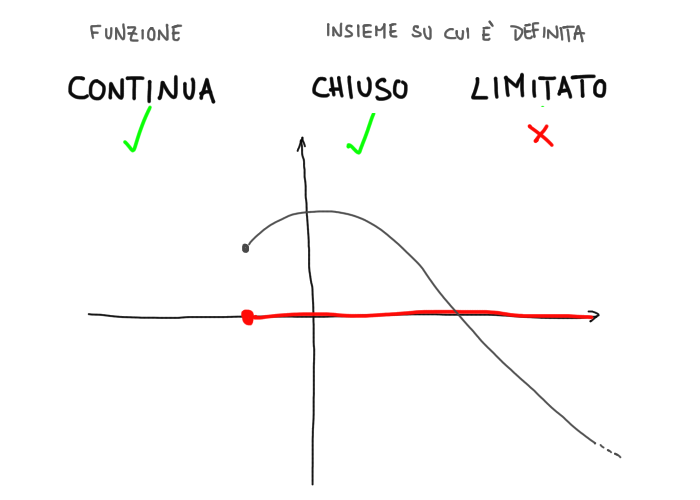 FUNZIONE INSIEME SU CUI È DEFINITA
CONTINUA CHIUSO LIMITATO